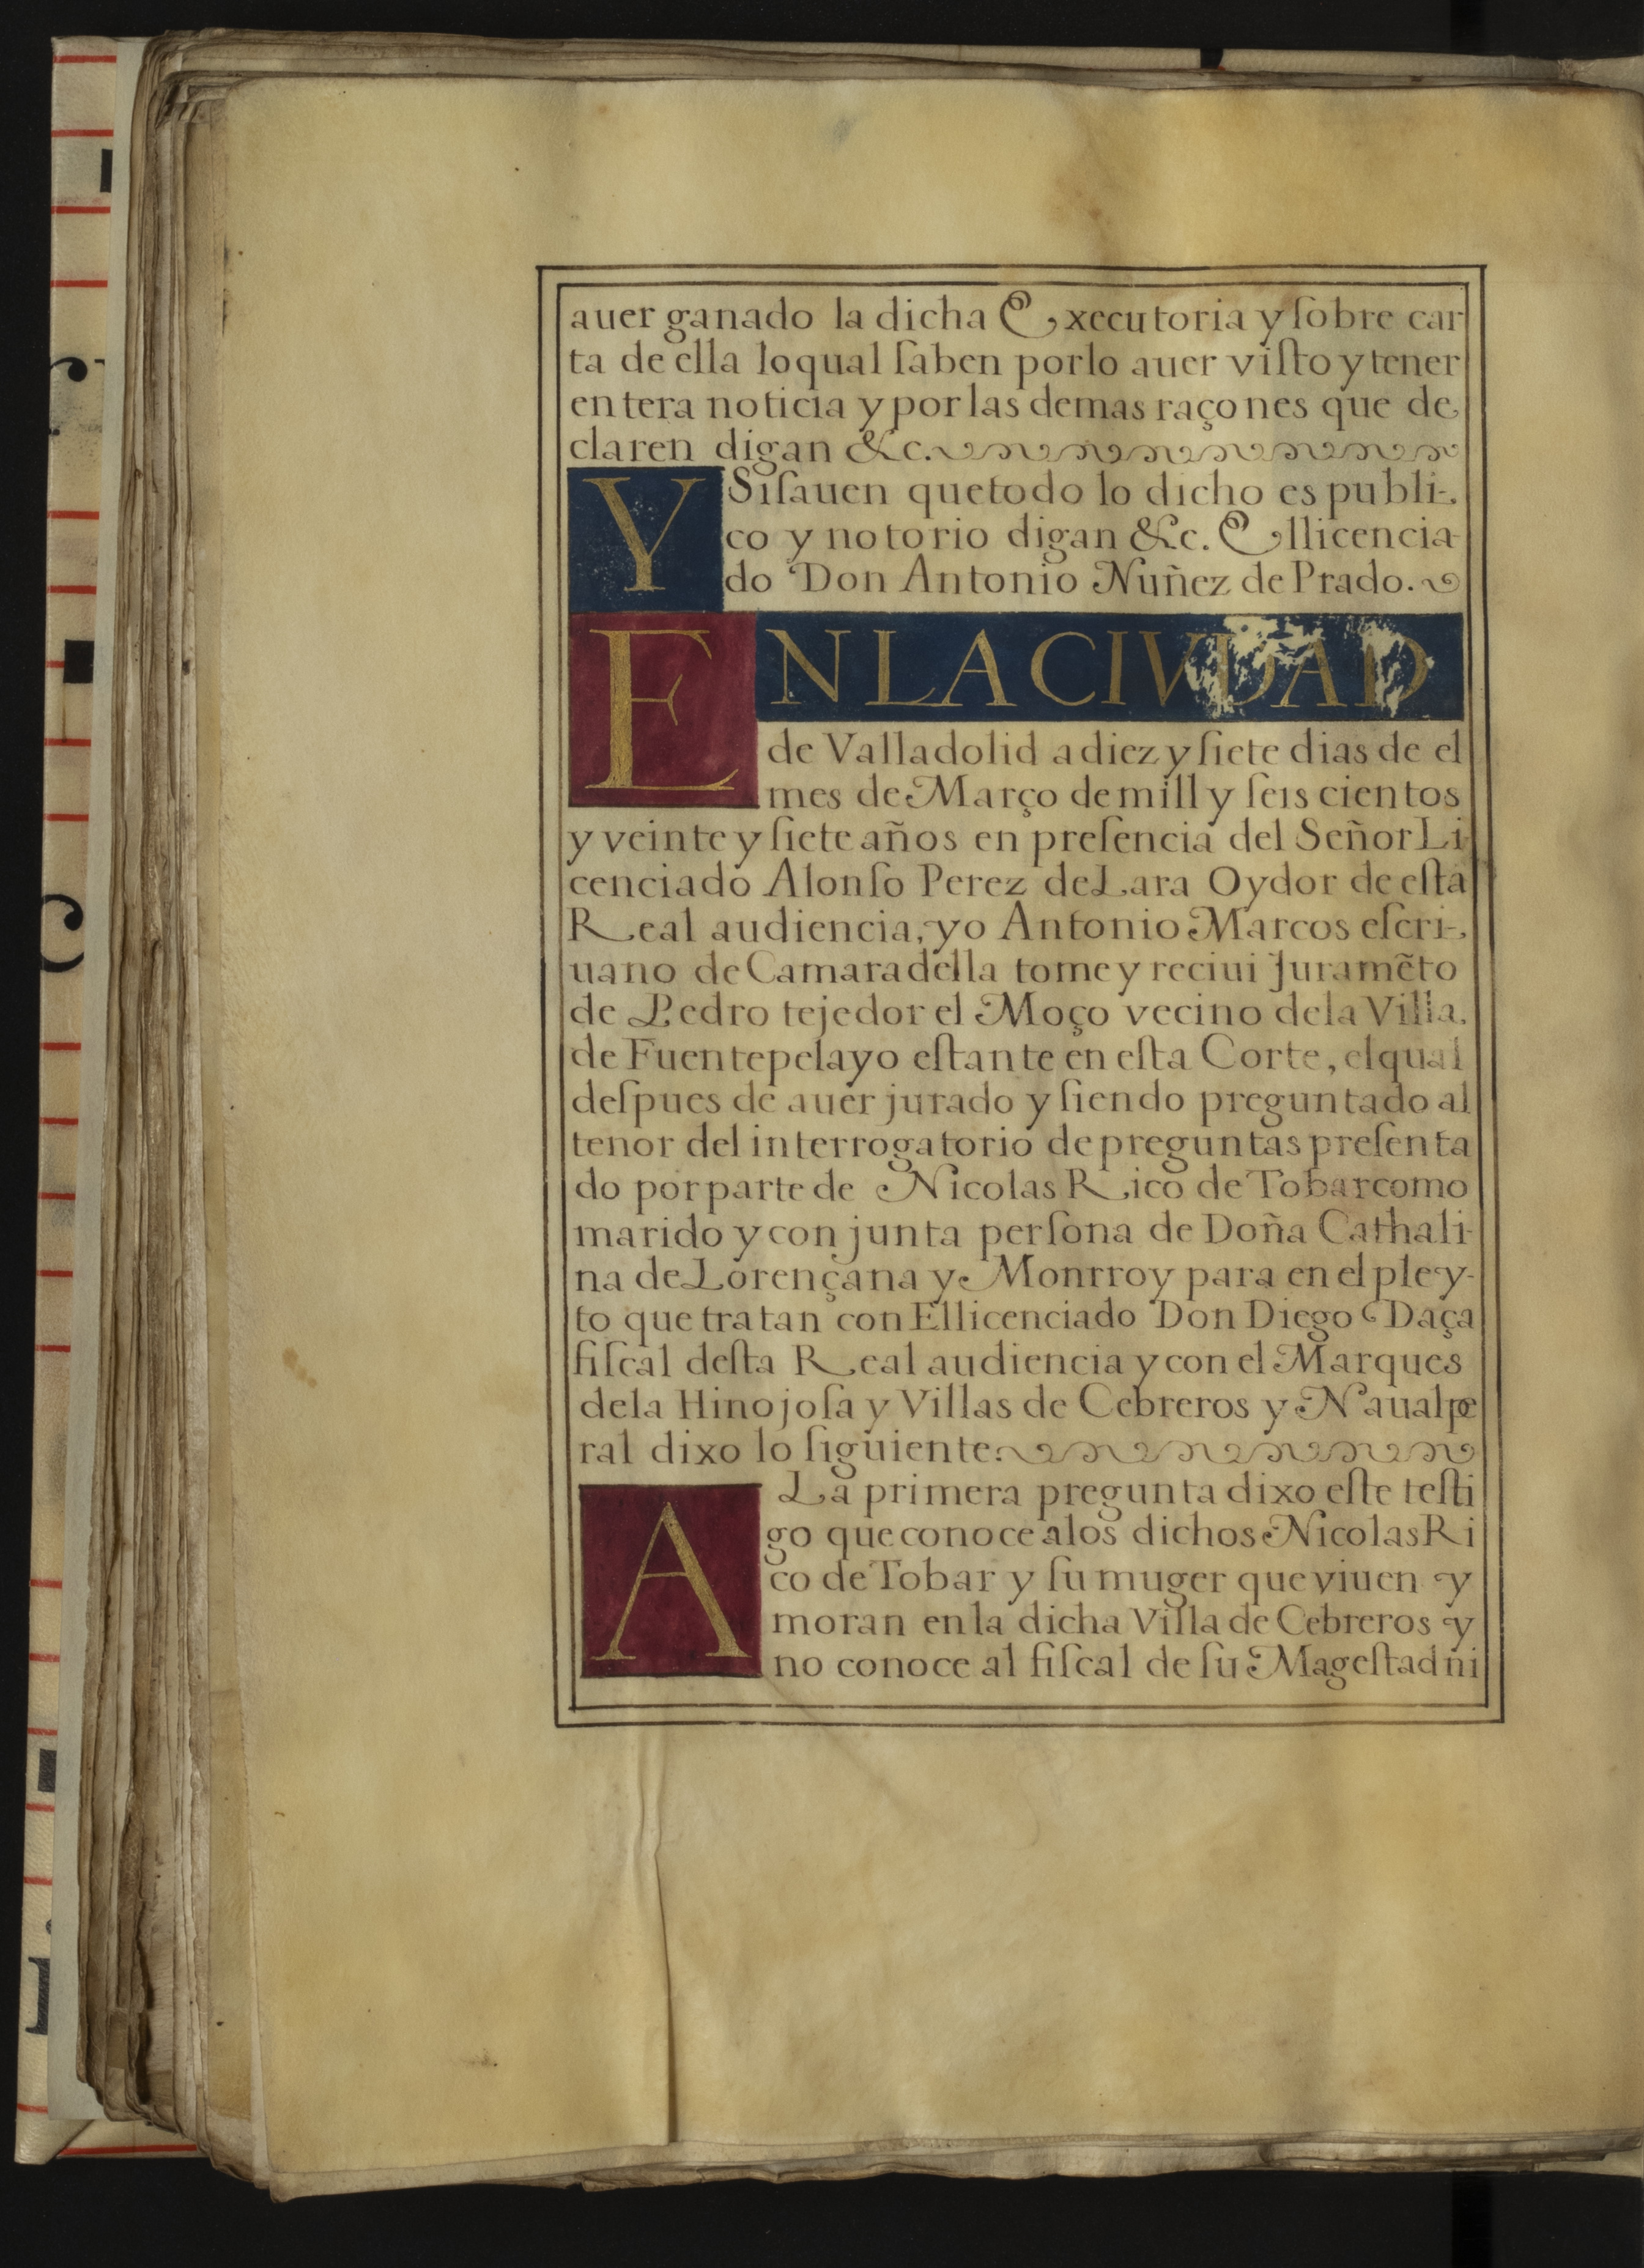 auer ganado la dicha Executoria y ſobre car
ta de ella loqual ſaben porlo auer viſto y tener
entera noticia y por las demas raçones que de
claren digan &c.
Y Si ſauen quetodo lo dicho es publi-
co y notorio digan &c. Ellicencia
do Don Antonio Nuñez de Prado.
EN LA CIVDAD
de Valladolid a diez y ſiete dias de el
mes de Março de mill y ſeis cientos
y veinte y ſiete años en preſencia del Señor Li
cenciado Alonſo Perez de Lara Oydor de eſta
Real audiencia, yo Antonio Marcos eſcri-
uano de Camara della tome y reciui Juramẽto
de Pedro tejedor el Moço vecino dela Villa
de Fuentepelayo eſtante en eſta Corte, elqual
deſpues de auer jurado y ſiendo preguntado al
tenor del interrogatorio de preguntas preſenta
do por parte de Nicolas Rico de Tobar como
marido y conjunta perſona de Doña Cathali-
na de Lorençana y Monrroy para en el pley-
to que tratan con Ellicenciado Don Diego Daça
fiſcal deſta Real audiencia y con el Marques
dela Hinojoſa y Villas de Cebreros y Naualpe
ral dixo lo ſiguiente.
A La primera pregunta dixo eſte teſti
go que conoce alos dichos Nicolas Ri
co de Tobar y ſu muger que viuen y
moran en la dicha Villa de Cebreros y
no conoce al fiſcal de ſu Mageſtad ni